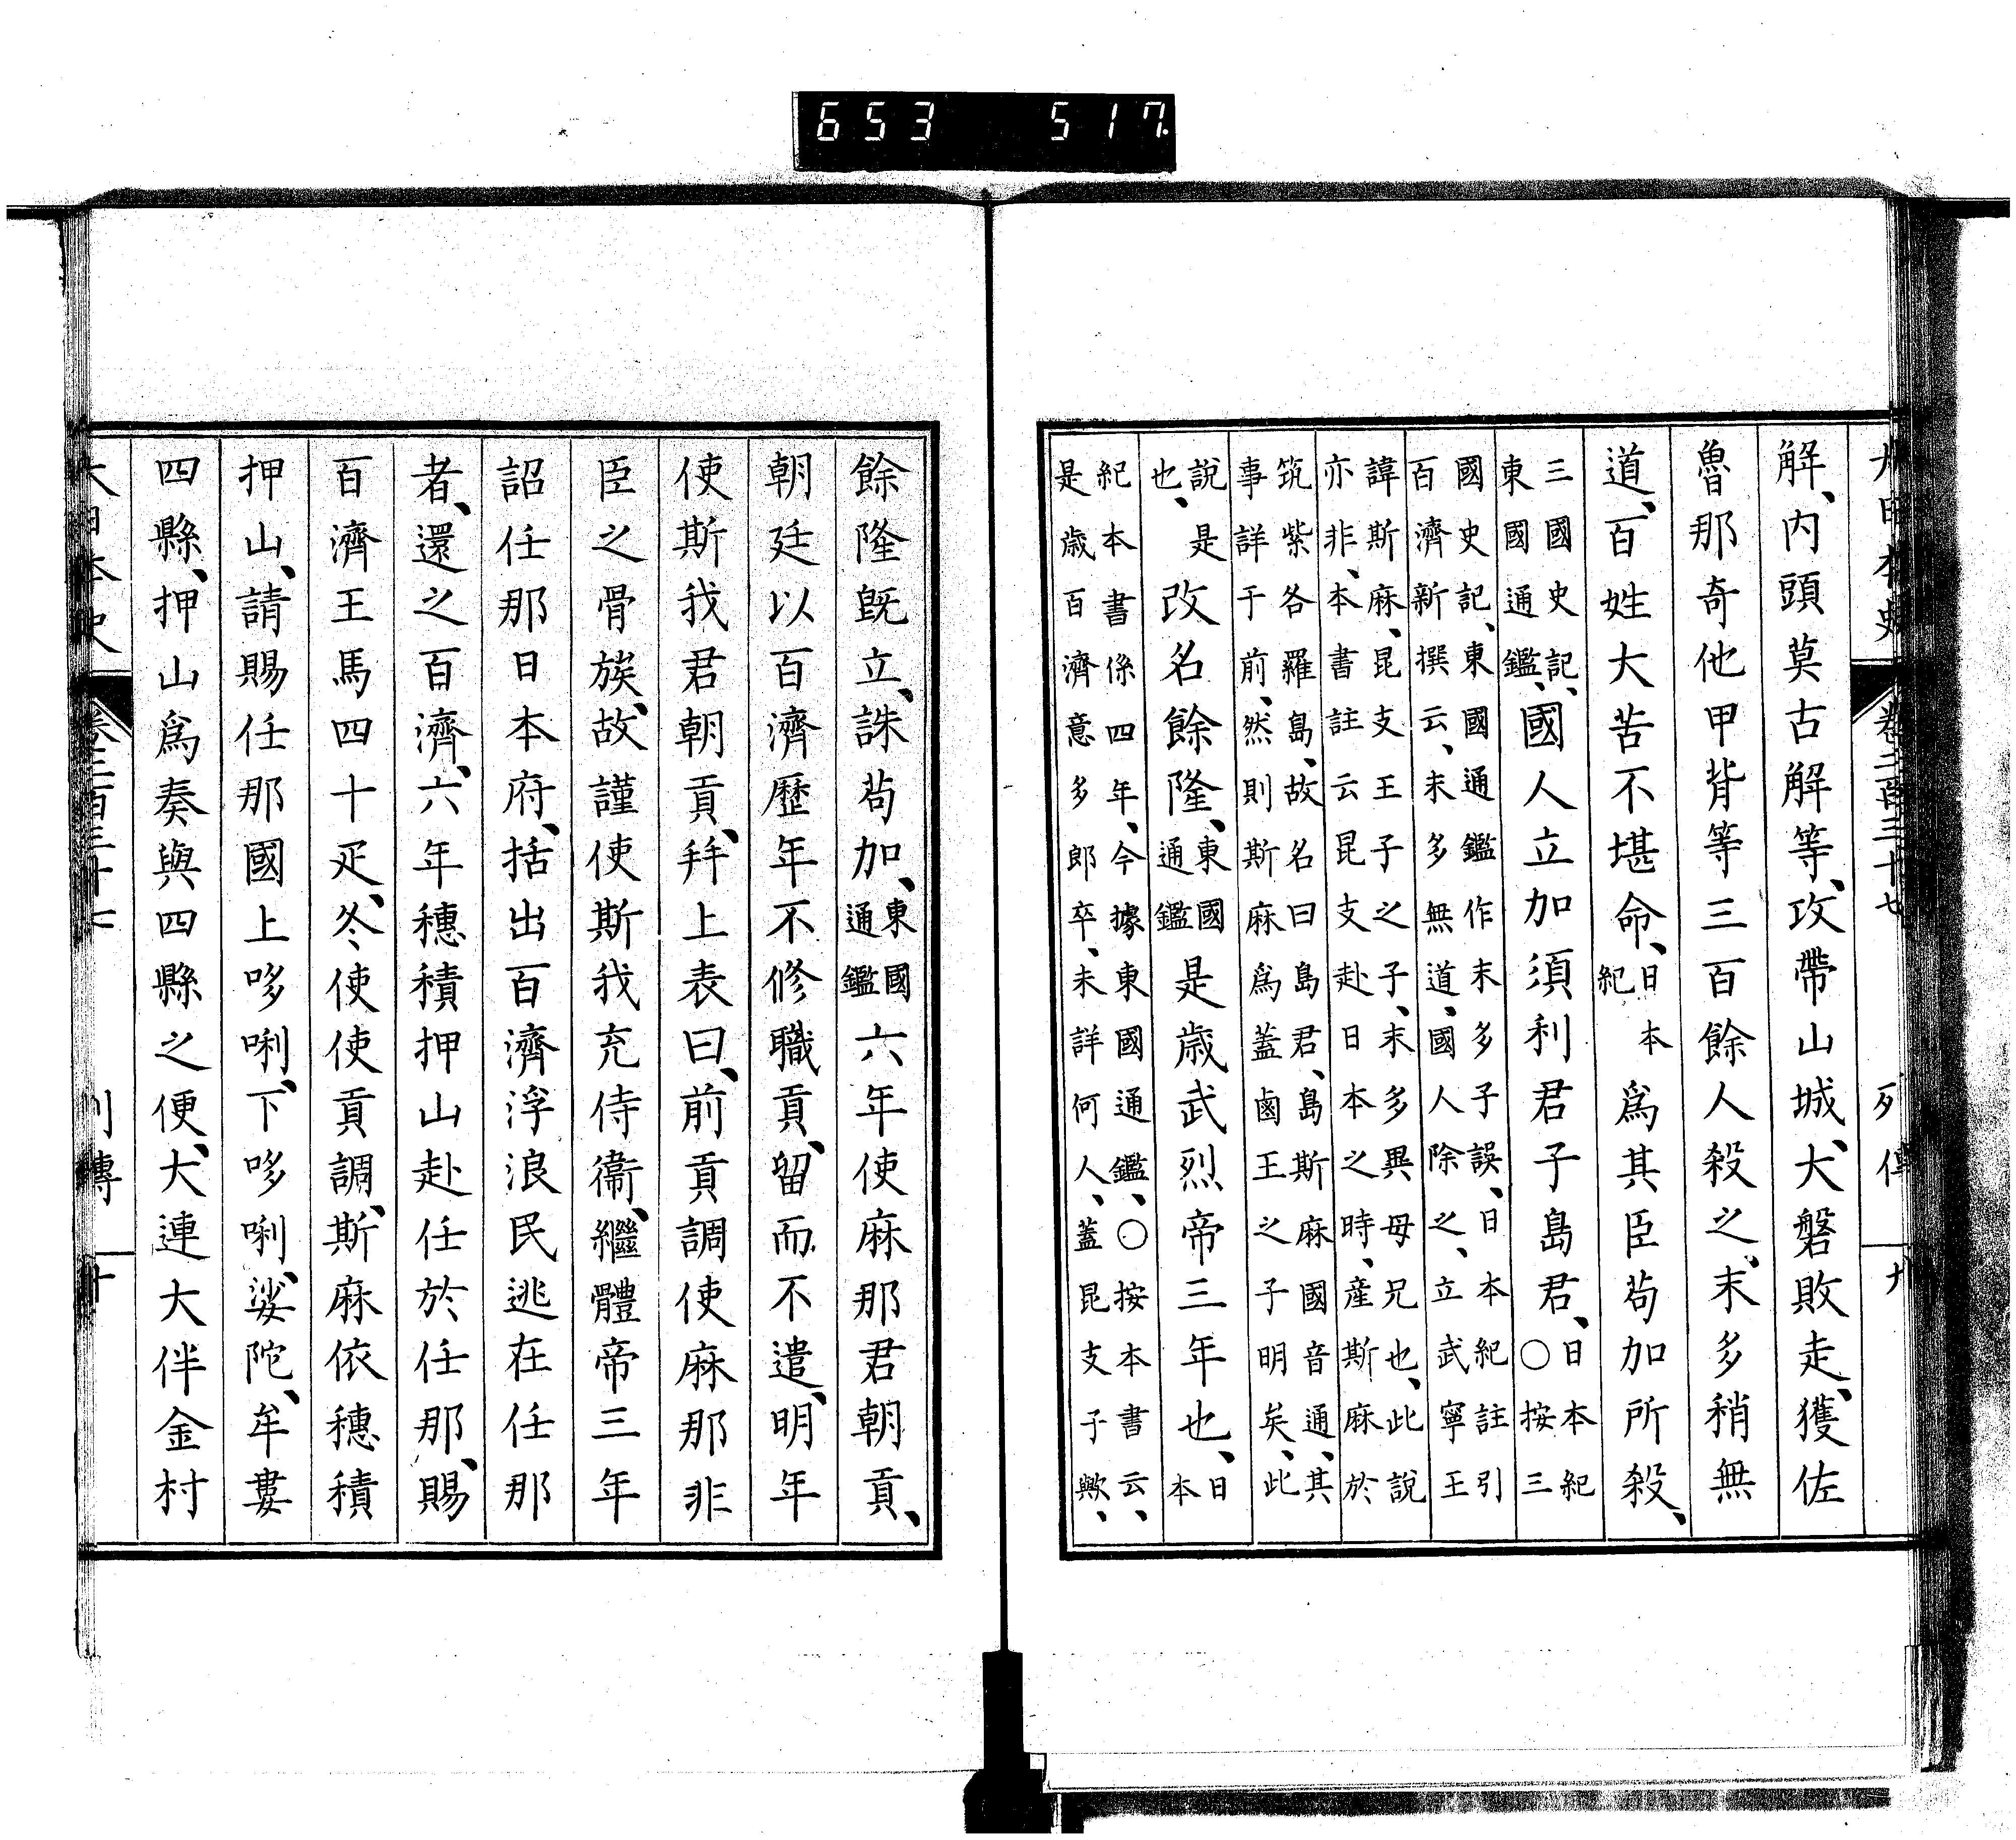 653 517
大日本史 卷二百三十七 列傳 九
解、内頭莫古解等、攻帶山城、大磐敗走、獲佐
魯那奇他甲背等三百餘人殺之、末多稍無
道、百姓大苦不堪命、日本紀 爲其臣苩加所殺、
三國史記、東國通鑑、國人立加須利君子島君、日本紀○按三
國史記、東國通鑑作末多子誤、日本紀註引
百濟新撰云、末多無道、國人除之、立武寧王
諱斯麻、昆支王子之子、末多異母兄也、此說
亦非、本書註云昆支赴日本之時、產斯麻於
筑紫各羅島、故名曰島君、島斯麻國音通、其
事詳于前、然則斯麻爲蓋鹵王之子明矣、此
說是也、改名餘隆、東國通鑑是歲武烈帝三年也、日本
紀本書係四年、今據東國通鑑、○按本書云、
是歲百濟意多郎卒、未詳何人、蓋昆支子歟、
餘隆既立、誅苩加、東國通鑑六年使麻那君朝貢、
朝廷以百濟歷年不修職貢、留而不遣、明年
使斯我君朝貢、拜上表曰、前貢調使麻那非
臣之骨族、故謹使斯我充侍衞、繼體帝三年
詔任那日本府、括出百濟浮浪民逃在任那
者、還之百濟、六年穗積押山赴任於任那、賜
百濟王馬四十疋、冬、使使貢調、斯麻依穗積
押山、請賜任那國上哆唎、下哆唎、娑陀、牟婁
四縣、押山爲奏與四縣之便、大連大伴金村
大日本史 卷二百三十七 列傳 十